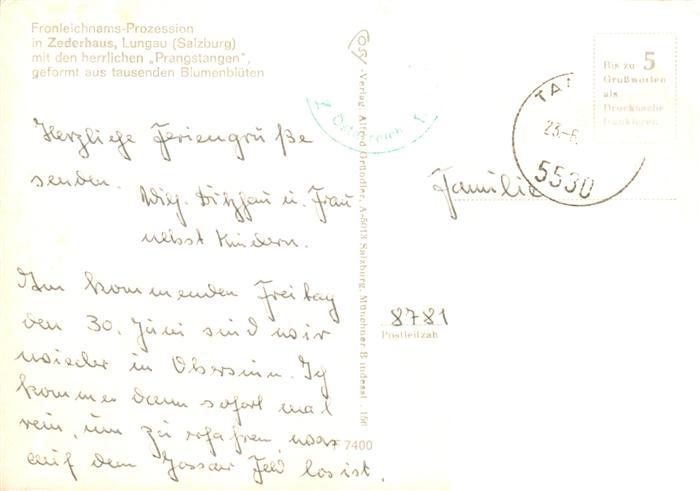 Fronleichnams-Prozession
in Zederhaus, Lungau (Salzburg)
mit den herrlichen „Prangstangen",
geformt aus tausenden Blumenblüten
Herzliche Feriengrüße
senden.
u. Frau
nebst Kindern.
Am kommenden Freitag
den 30. Juni sind wir
wieder in Obersinn. Ich
komme dann sofort mal
rein, um zu erfahren was
auf dem Feld los ist.
F 7400
Verlag Alfred Orthofer, A-5013 Salzburg, Münchner Bundesstr. 156
Österreich
Bis zu 5
Grußworten
als
Drucksache
frankieren
TA
23.-6.
5580
Familie
8781
Postleitzahl